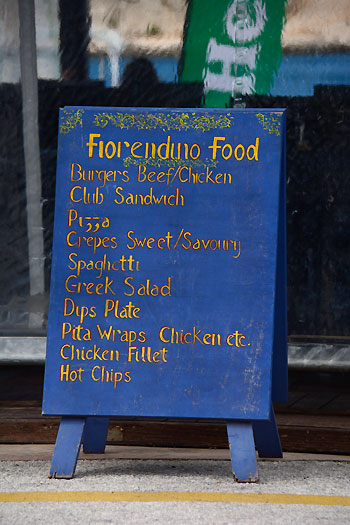 He
Fiorendino Food
Burgers Beef/Chicken
Club Sandwich
Pizza
Crepes Sweet/Savoury
Spaghetti
Greek Salad
Dips Plate
Pita Wraps Chicken etc.
Chicken Fillet
Hot Chips